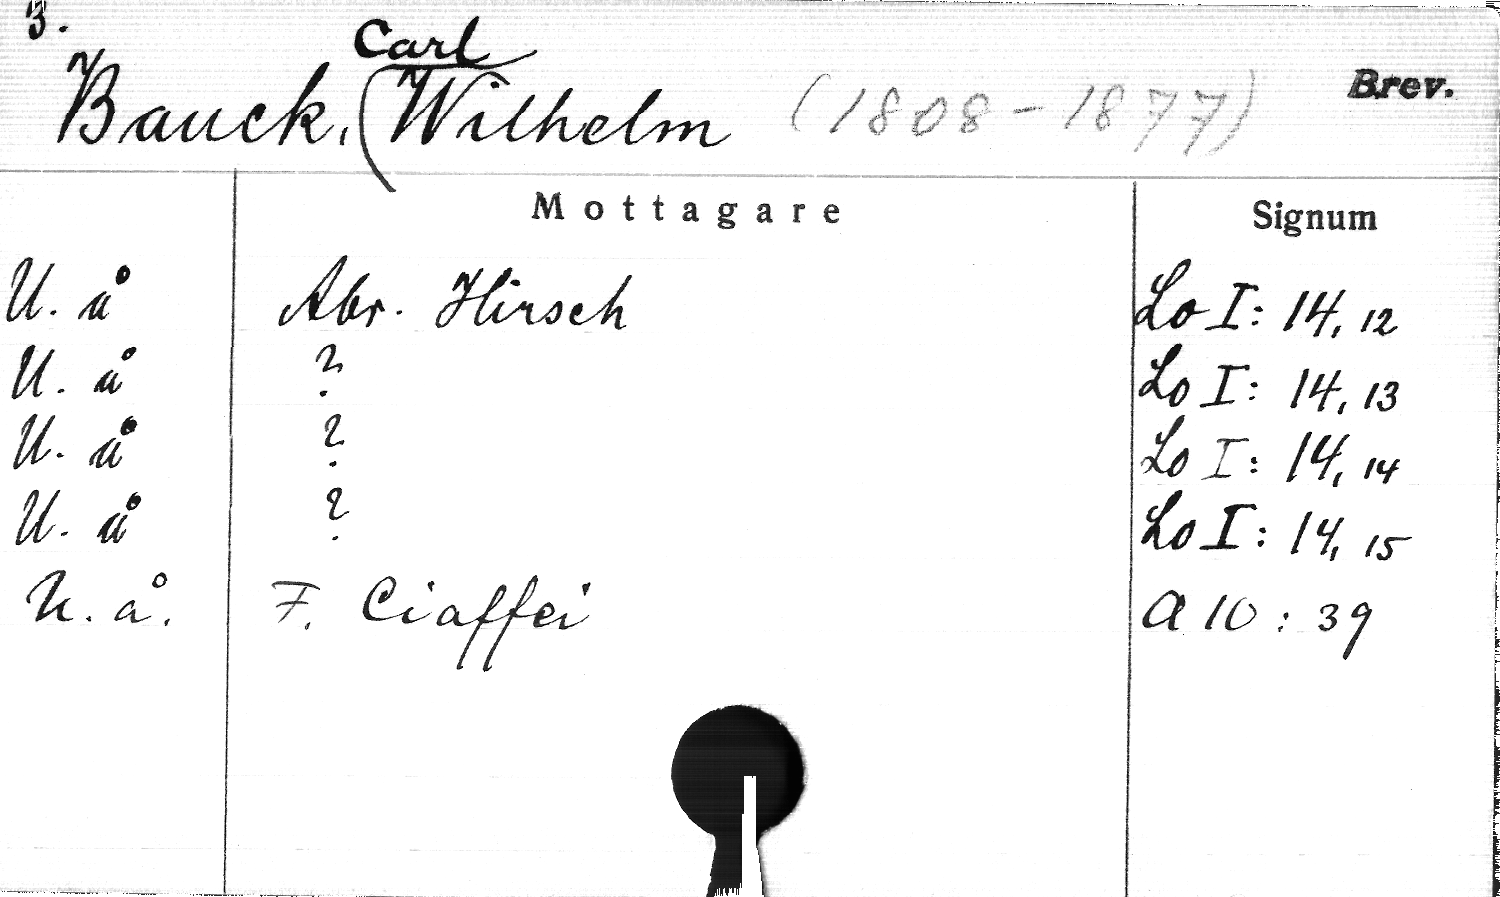 3.
Bauck, Carl Wilhelm (1808-1877) Brev.
Mottagare Signum
U. å Abr. Hirsch Lo I: 14, 12
U. å ? Lo I: 14, 13
U. å ? Lo I: 14, 14
U. å ? Lo I: 14, 15
U. å. F. Ciaffei A 10 : 39